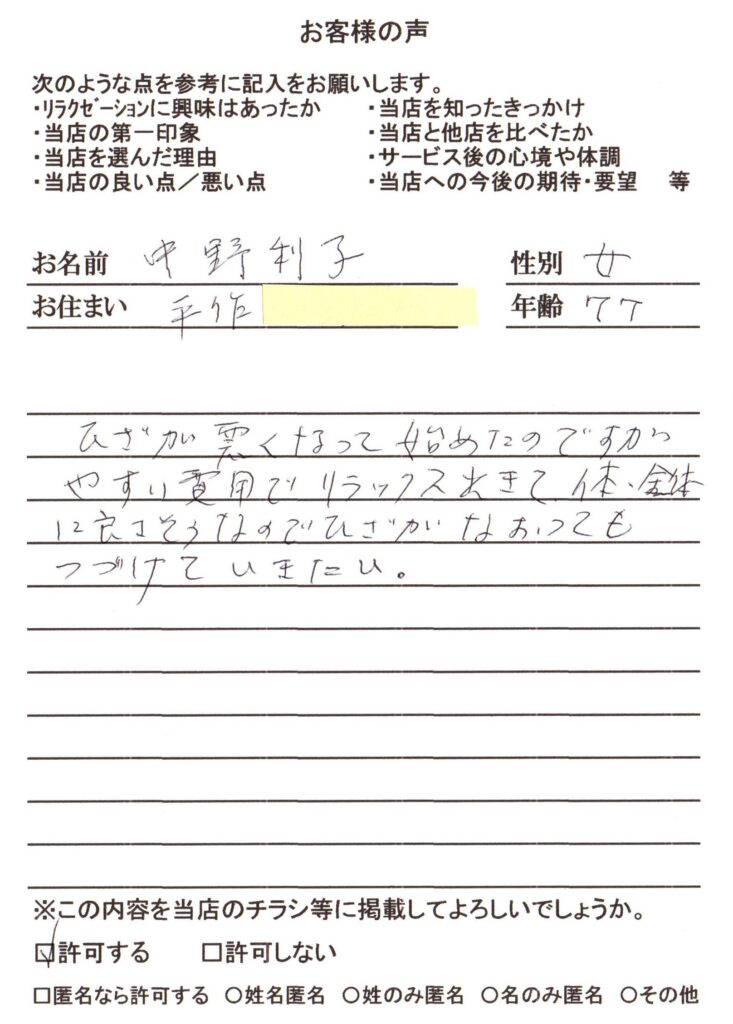 お客様の声
次のような点を参考に記入をお願いします。
・ﾘﾗｸｾﾞｰｼｮﾝに興味はあったか ・当店を知ったきっかけ
・当店の第一印象 ・当店と他店を比べたか
・当店を選んだ理由 ・サービス後の心境や体調
・当店の良い点／悪い点 ・当店への今後の期待・要望 等
お名前 中野利子 性別 女
お住まい 平作 年齢 77
ひざが悪くなって始めたのですから
やすい費用でリラックス出きて体・全体
に良さそうなのでひざがなおっても
つづけていきたい。
※この内容を当店のチラシ等に掲載してよろしいでしょうか。
☑許可する □許可しない
□匿名なら許可する ○姓名匿名 ○姓のみ匿名 ○名のみ匿名 ○その他